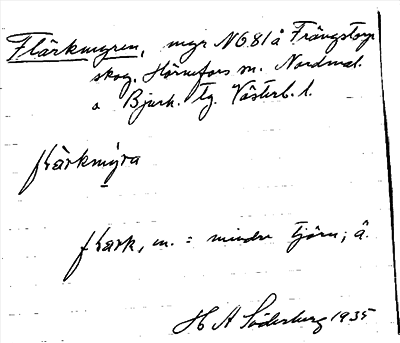 Flärkmyren, myr N681å Trångstorp
skog. Hörnefors m. Nordmal.
o Bjurh. tg. Västerb. l.
flärkmýra
flark, m. = mindre tjärn; å.
H A Söderberg 1935